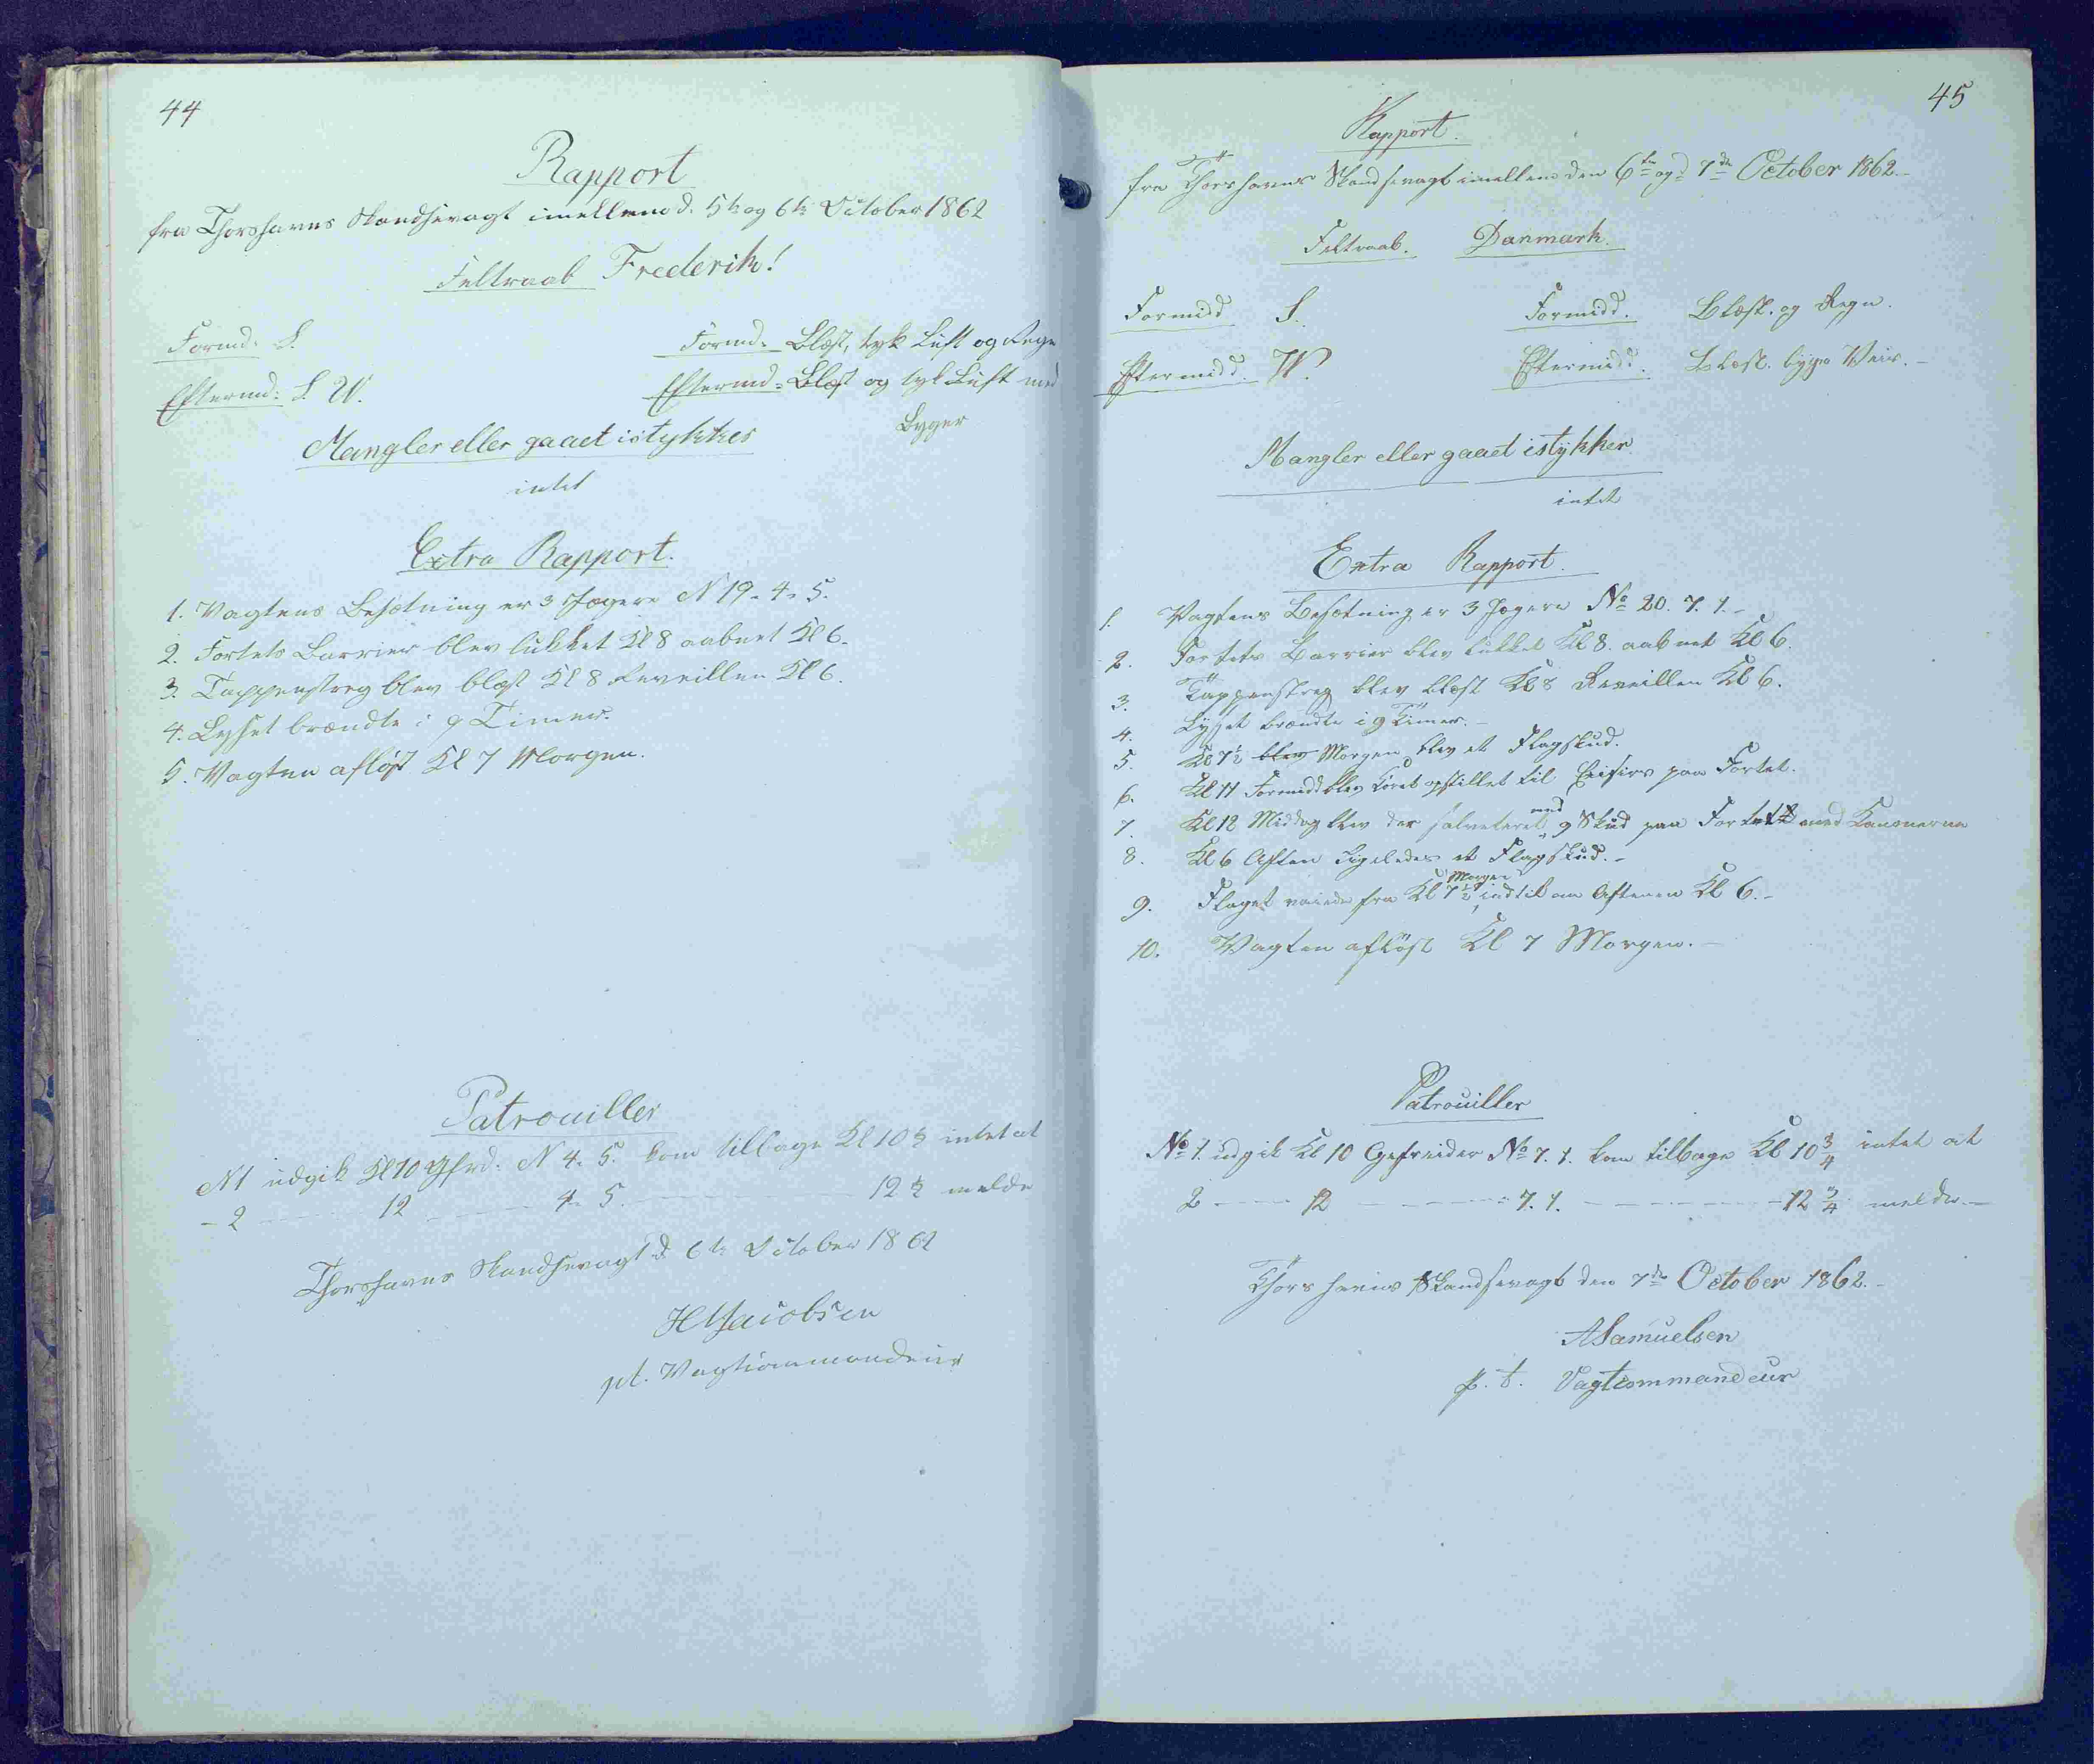 44
Rapport
fra Thorshavns Skandsevagt imellem d. 5te og 6te October 1862
Feltraab Frederik!
Formd: S. Formd: Blæst, tyk Luft og Regn
Eftermd: S W. Eftermd: Blæst og tyk Luft med
Byger
Mangler eller gaaet istykker
intet
Extra Rapport.
1. Vagtens Besætning er 3 Jægere N 19. 4. 5.
2. Fortets Barrier blev lukket Kl 8 aabnet Kl 6.
3. Tappenstreg blev blæst Kl 8 Reveillen Kl 6.
4. Lyset brændte i 9 Timer.
5. Vagten afløst Kl 7 Morgen.
Patrouiller
N1 udgik Kl 10 Gfrd. N 4. 5. kom tilbage Kl 10½ intet at
- 2 — 12 — 4. 5. — 12½ melde
Thorshavns Skandsevagt d. 6te October 1862
HJacobsen
pt. Vagtcommandeur
45
Rapport.
fra Thorshavns Skandsevagt imellem den 6te og 7de October 1862.-
Feltraab. Danmark.
Formidd S. Formidd. Blæst. og Regn.
Eftermidd. W. Eftermidd. Blæst. bygge Veir. -
Mangler eller gaaet istykker
intet
Extra Rapport.
1. Vagtens Besætning er 3 Jægere No 20. 7. 1. -
2. Fortets Barrier blev lukket Kl 8. aabnet Kl 6.
3. Tappenstreg blev blæst Kl 8 Reveillen Kl 6.
4. Lyset brændte i 9 Timer. -
5. Kl 7½ blev Morgen blev et Flagskud.
6. Kl 11 Formidd blev Coret opstillet til paa Fortet.
7. Kl 12 Middag blev der saluteret med 9 Skud paa Fortet med Kanonerne
8. Kl 6 Aften ligeledes et Flagskud. -
9. Flaget vaiede fra Kl 7½ Morgen indtil om Aftenen Kl 6. -
10. Vagten afløst Kl 7 Morgen. -
Patrouiller
No 1. udgik Kl 10 Gefreider No 7. 1. kom tilbage Kl 10¾ intet at
2 — 12 — 7. 1. — 12¾ melde. -
Thorshavns Skandsevagt den 7de October 1862. -
ASamuelsen
p. t. Vagtcommandeur